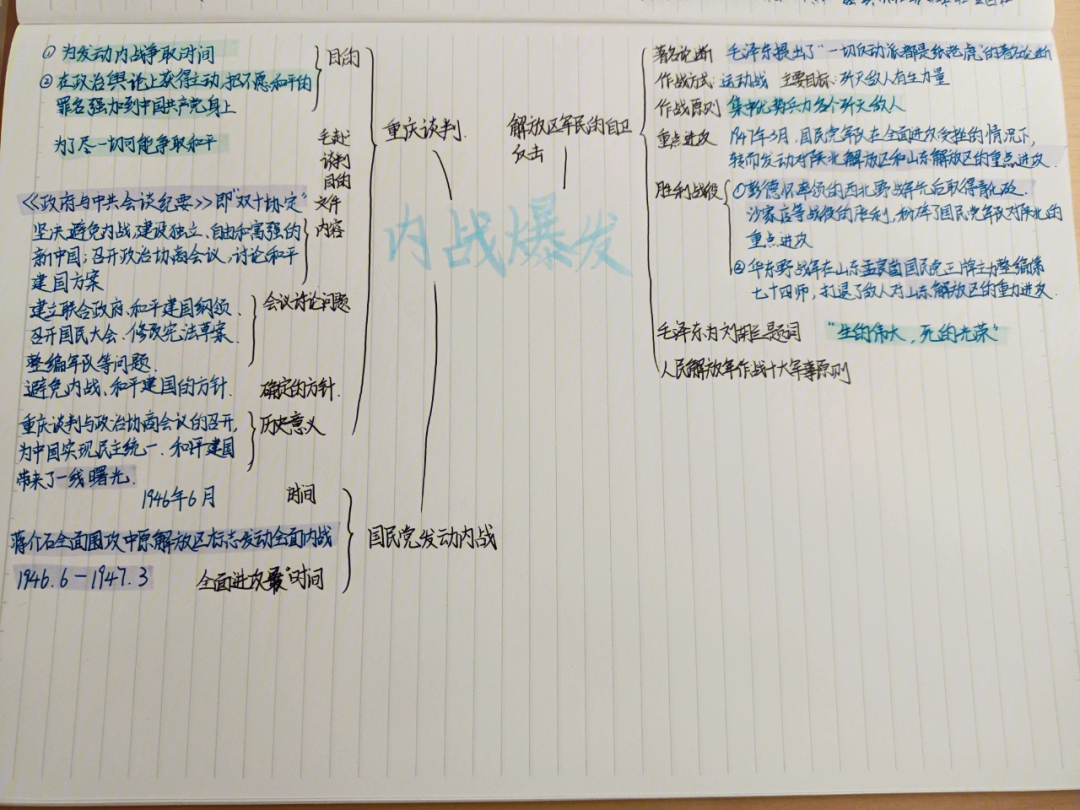 ① 为发动内战争取时间
② 在政治舆论上获得主动,把不愿和平的
罪名强加到中国共产党身上
目的
为了尽一切可能争取和平
毛赴
谈判
目的
重庆谈判
《政府与中共会谈纪要》即"双十协定"
文件
坚决避免内战,建设独立、自由和富强的
新中国;召开政治协商会议,讨论和平
建国方案
内容
建立联合政府、和平建国纲领、
召开国民大会、修改宪法草案、
整编军队等问题.
会议讨论问题
避免内战、和平建国的方针.
确定的方针.
重庆谈判与政治协商会议的召开,
为中国实现民主统一、和平建国
带来了一线曙光.
历史意义
内战爆发
1946年6月
时间
蒋介石全面围攻中原解放区标志发动全面内战
国民党发动内战
1946.6-1947.3
全面进攻 时间
解放区军民的自卫
反击
著名论断 毛泽东提出了"一切反动派都是纸老虎"的著名论断
作战方式:运动战 主要目标:歼灭敌人有生力量
作战原则 集中优势兵力各个歼灭敌人
重点进攻 1947年3月,国民党军队在全面进攻受挫的情况下,
转而发动对陕北解放区和山东解放区的重点进攻.
胜利战役 ①彭德怀率领的西北野战军先后取得青化砭、
沙家店等战役的胜利,粉碎了国民党军队对陕北的
重点进攻
② 华东野战军在山东孟良崮国民党王牌主力整编第
七十四师,打退了敌人对山东解放区的重力进攻.
毛泽东为刘胡兰题词 "生的伟大,死的光荣"
人民解放军作战十大军事原则